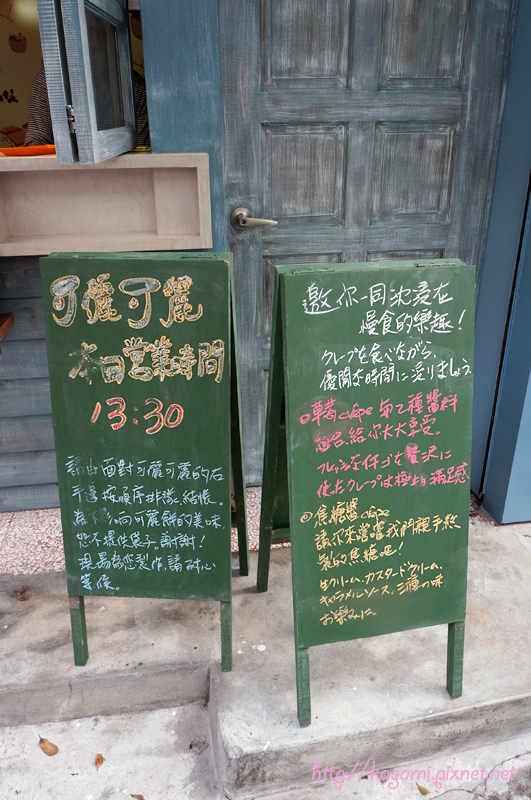 可儷可麗
本日營業時間
13:30
請由面對可麗可麗的右
手邊按順序排隊結帳。
為了影响可麗餅的美味
恕不提供袋子。謝謝！
現場為您製作，請耐心
等候。
邀你一同沈浸在
慢食的樂趣！
クレープを食べながら、
優閒な時間に浸りましょう。
草莓crêpe 莓て種醬料
組合，給你大大享受
フレッシュなイチゴを贅沢に
使ったクレープは極上の満足感
焦糖醬crêpe
請下來嚐嚐我們親手熬
製的焦糖吧！
生クリーム、カスタードクリーム、
キャラメルソース、三種の味
お楽みに。
http://koyomi.pixnet.net